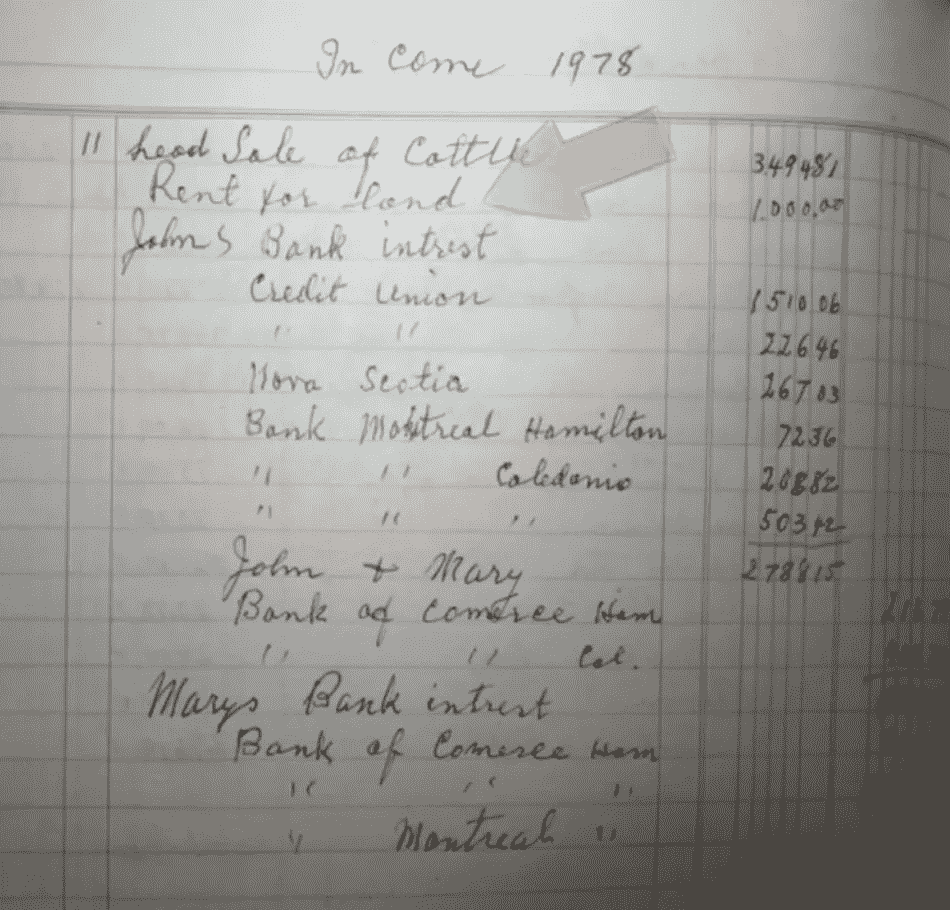 In Come 1978
11 head Sale of Cattle 3494 81
Rent for land 1.000,00
Johns Bank intrest
Credit Union 1510 06
" " 226 46
Nova Scotia 267 03
Bank Montreal Hamilton 72 36
" " Caledonia 208 82
" " " 503 42
John + Mary 2788 15
Bank of Comerce Ham
" " Cal.
Marys Bank intrest
Bank of Comerce Ham
" " "
" Montreal "